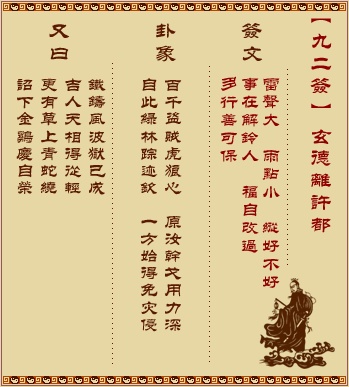 【九二簽】 玄德離許都
簽文
雷聲大 雨點小 縱好不好
事在解鈴人 福自改過
多行善可保
卦象
百千盜賊虎狼心 原汝幹戈用力深
自此綠林踪迹欽 一方始得免灾侵
又曰
鐵鑄風波獄已成
吉人天相得從輕
更有草上青蛇繞
詔下金鷄慶自榮